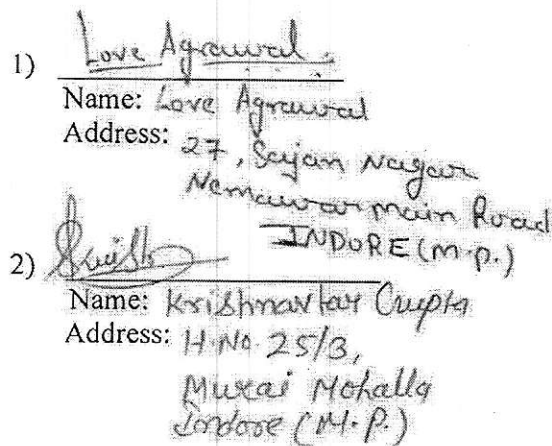 1) Love Agrawal
Name: Love Agrawal
Address: 27, Sajan Nagar
Nemawar main Road
INDORE (M.P.)
2)
Name: Krishnavtar Gupta
Address: H.No. 25/3,
Murai Mohalla
Indore (M.P.)